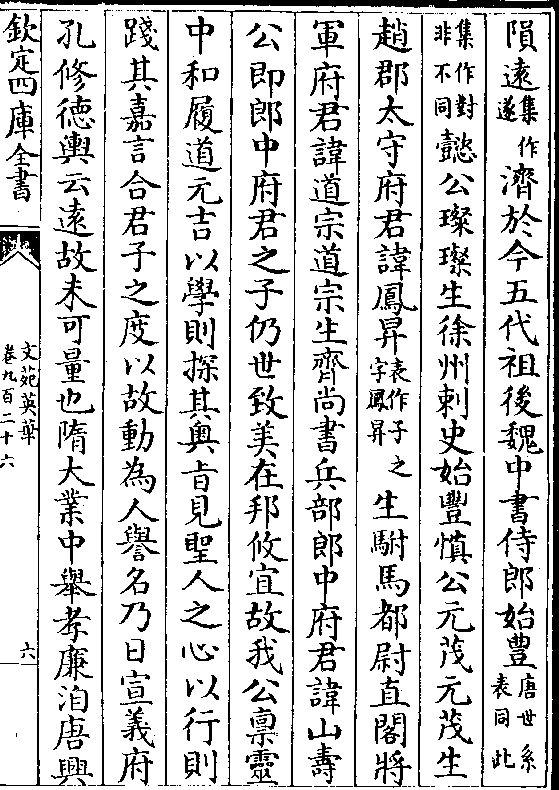 隕遠集作遂濟於今五代祖後魏中書侍郎始豐唐世系表同此
集作對非不同懿公璨璨生徐州刺史始豐慎公元茂元茂生
趙郡太守府君諱鳳昇表作子字鳳昇之生駙馬都尉直閣將
軍府君諱道宗道宗生齊尚書兵部郎中府君諱山壽
公即郎中府君之子仍世致美在邦攸宜故我公禀靈
中和履道元吉以學則探其奥㫖見聖人之心以行則
踐其嘉言合君子之度以故動為人譽名乃日宣義府
孔修德輿云遠故未可量也隋大業中舉孝廉洎唐興
欽定四庫全書
文苑英華
卷九百二十六
六